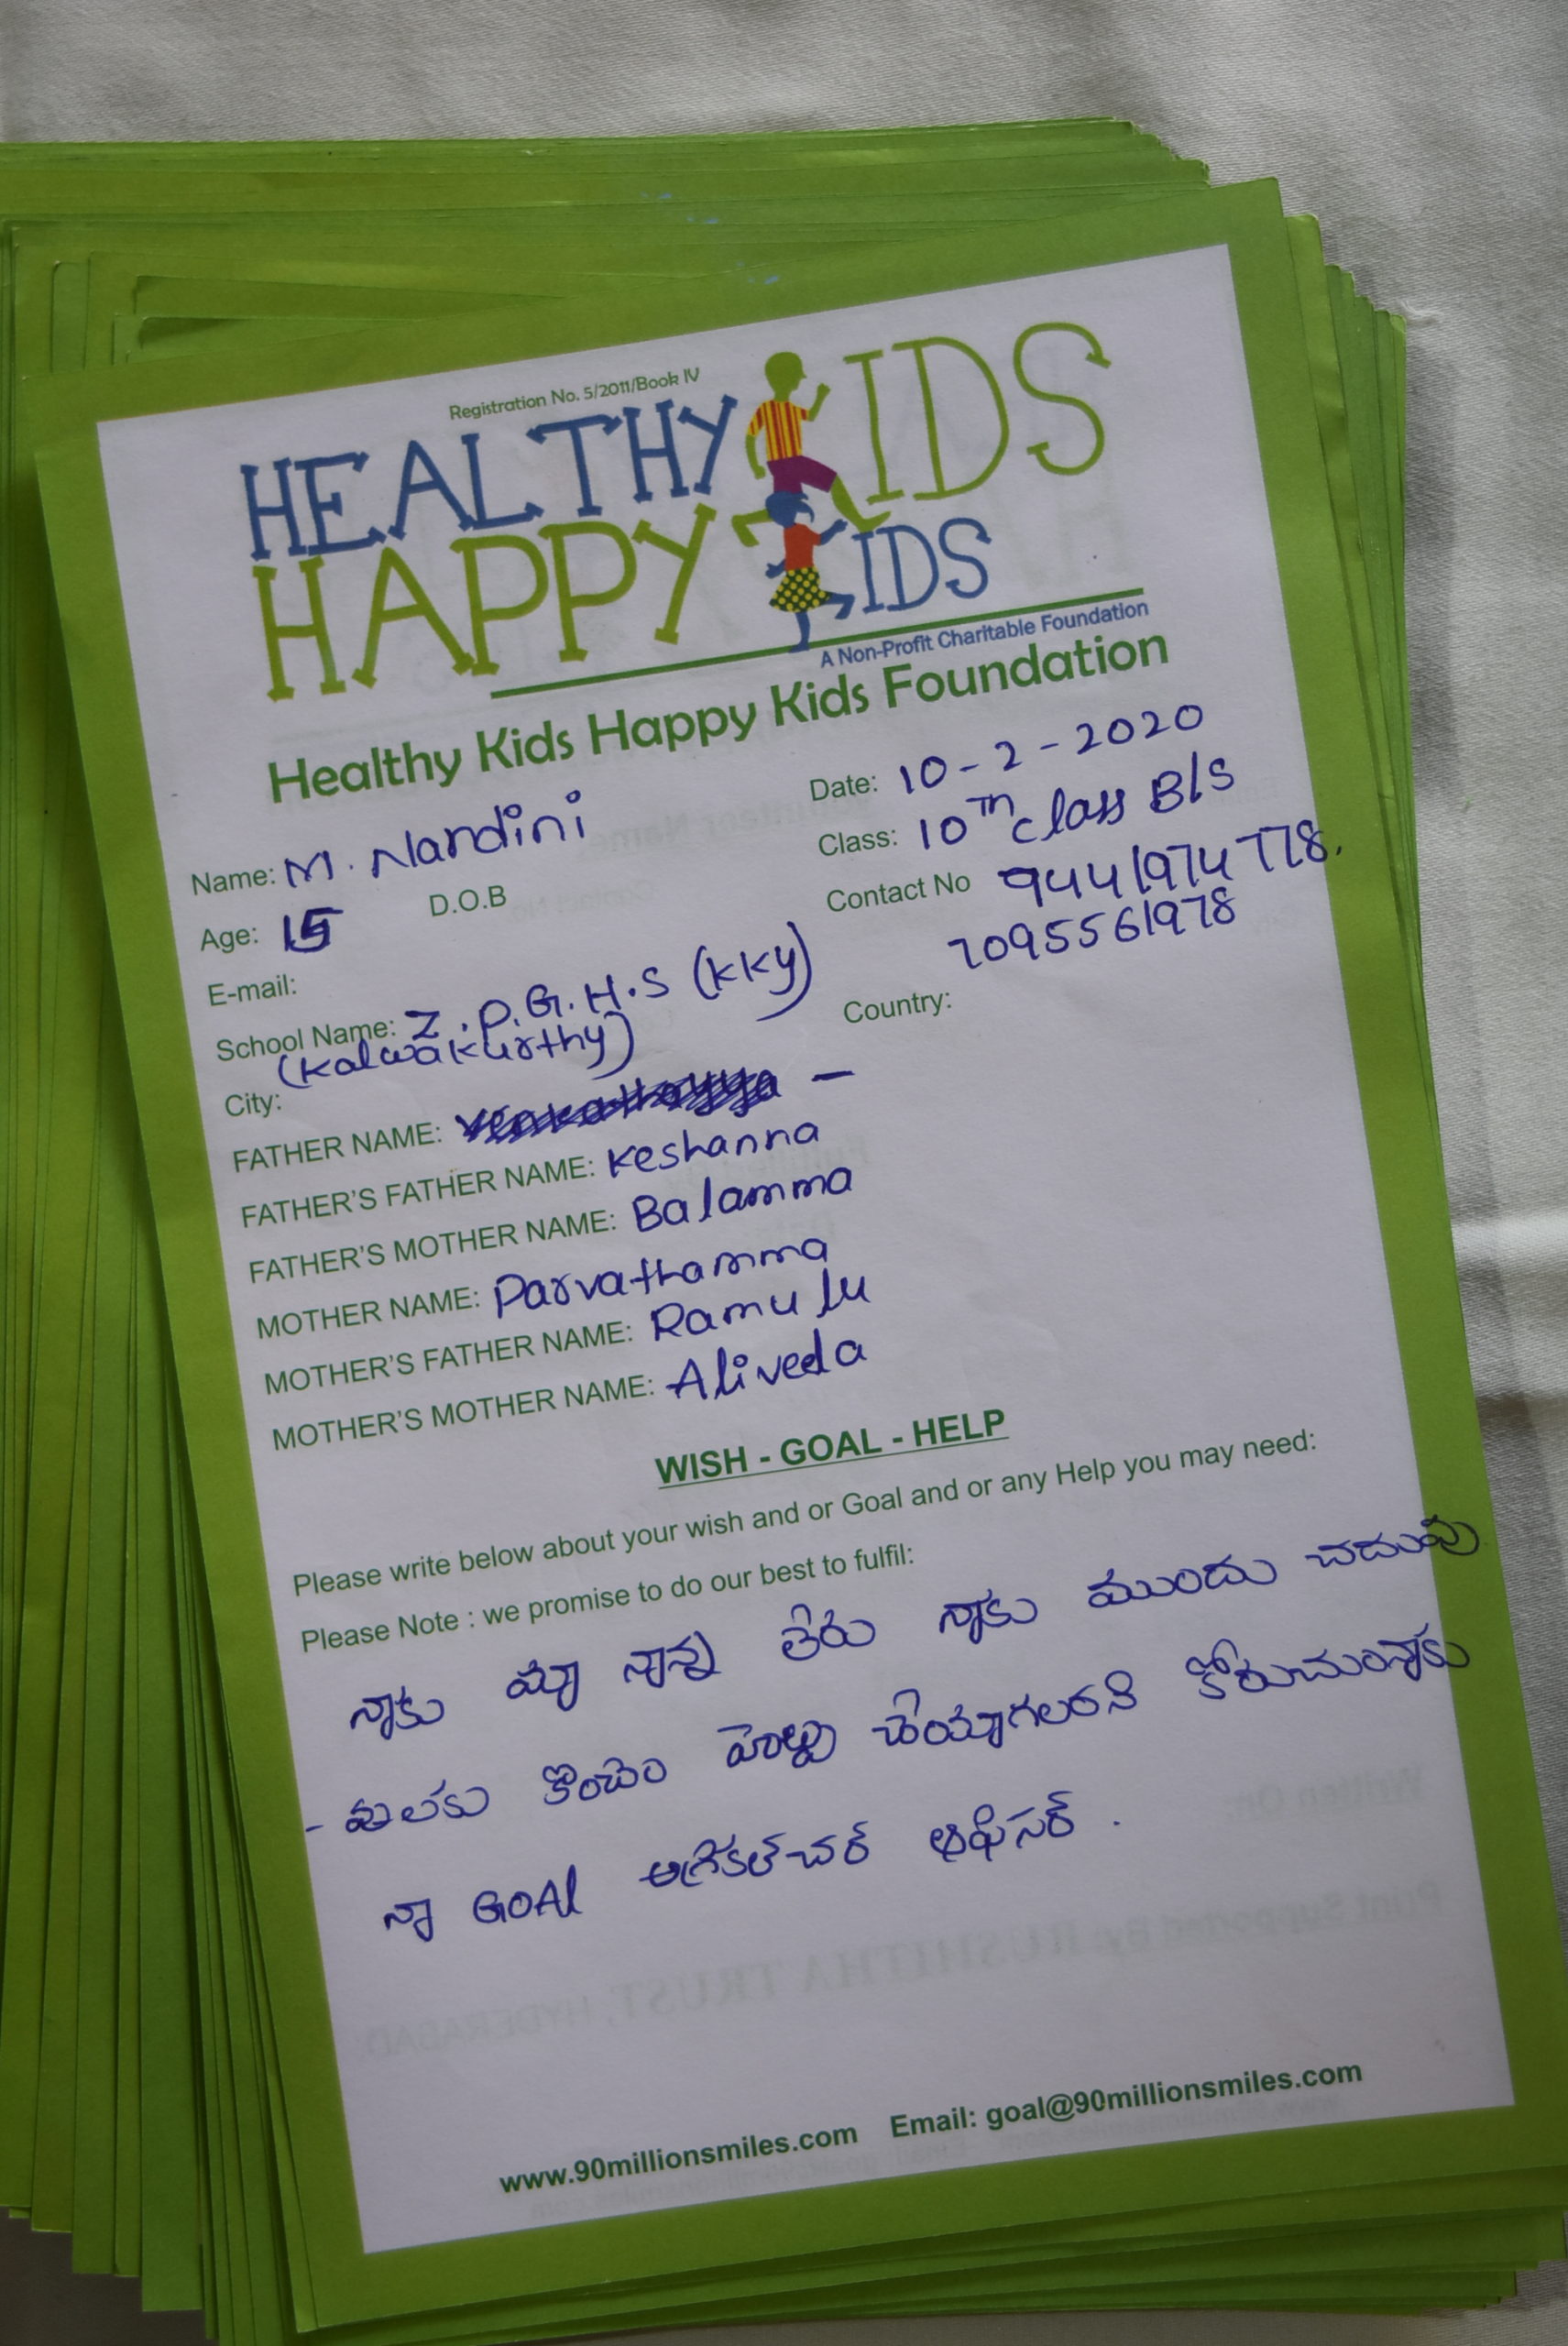 Registration No. 5/2011/Book IV
HEALTHY KIDS
HAPPY KIDS
A Non-Profit Charitable Foundation
Healthy Kids Happy Kids Foundation
Date: 10-2-2020
Name: M. Nandini
Class: 10th class B/S
Age: 15 D.O.B
Contact No 9441974778.
7095561978
E-mail:
School Name: Z.P.G.H.S (KKY)
(Kalwakurthy)
Country:
City:
FATHER NAME: –
FATHER'S FATHER NAME: Keshanna
FATHER'S MOTHER NAME: Balamma
MOTHER NAME: Parvathamma
MOTHER'S FATHER NAME: Ramulu
MOTHER'S MOTHER NAME: Aliveda
WISH - GOAL - HELP
Please write below about your wish and or Goal and or any Help you may need:
Please Note : we promise to do our best to fulfil:
నాకు మా నాన్న లేరు నాకు ముందు చదువు
- వులకు కొంచెం హెల్పు చేయాగలరని కోరుచున్నాకు
నా GOAl అగ్రికల్చర్ ఆఫీసర్.
www.90millionsmiles.com Email: goal@90millionsmiles.com